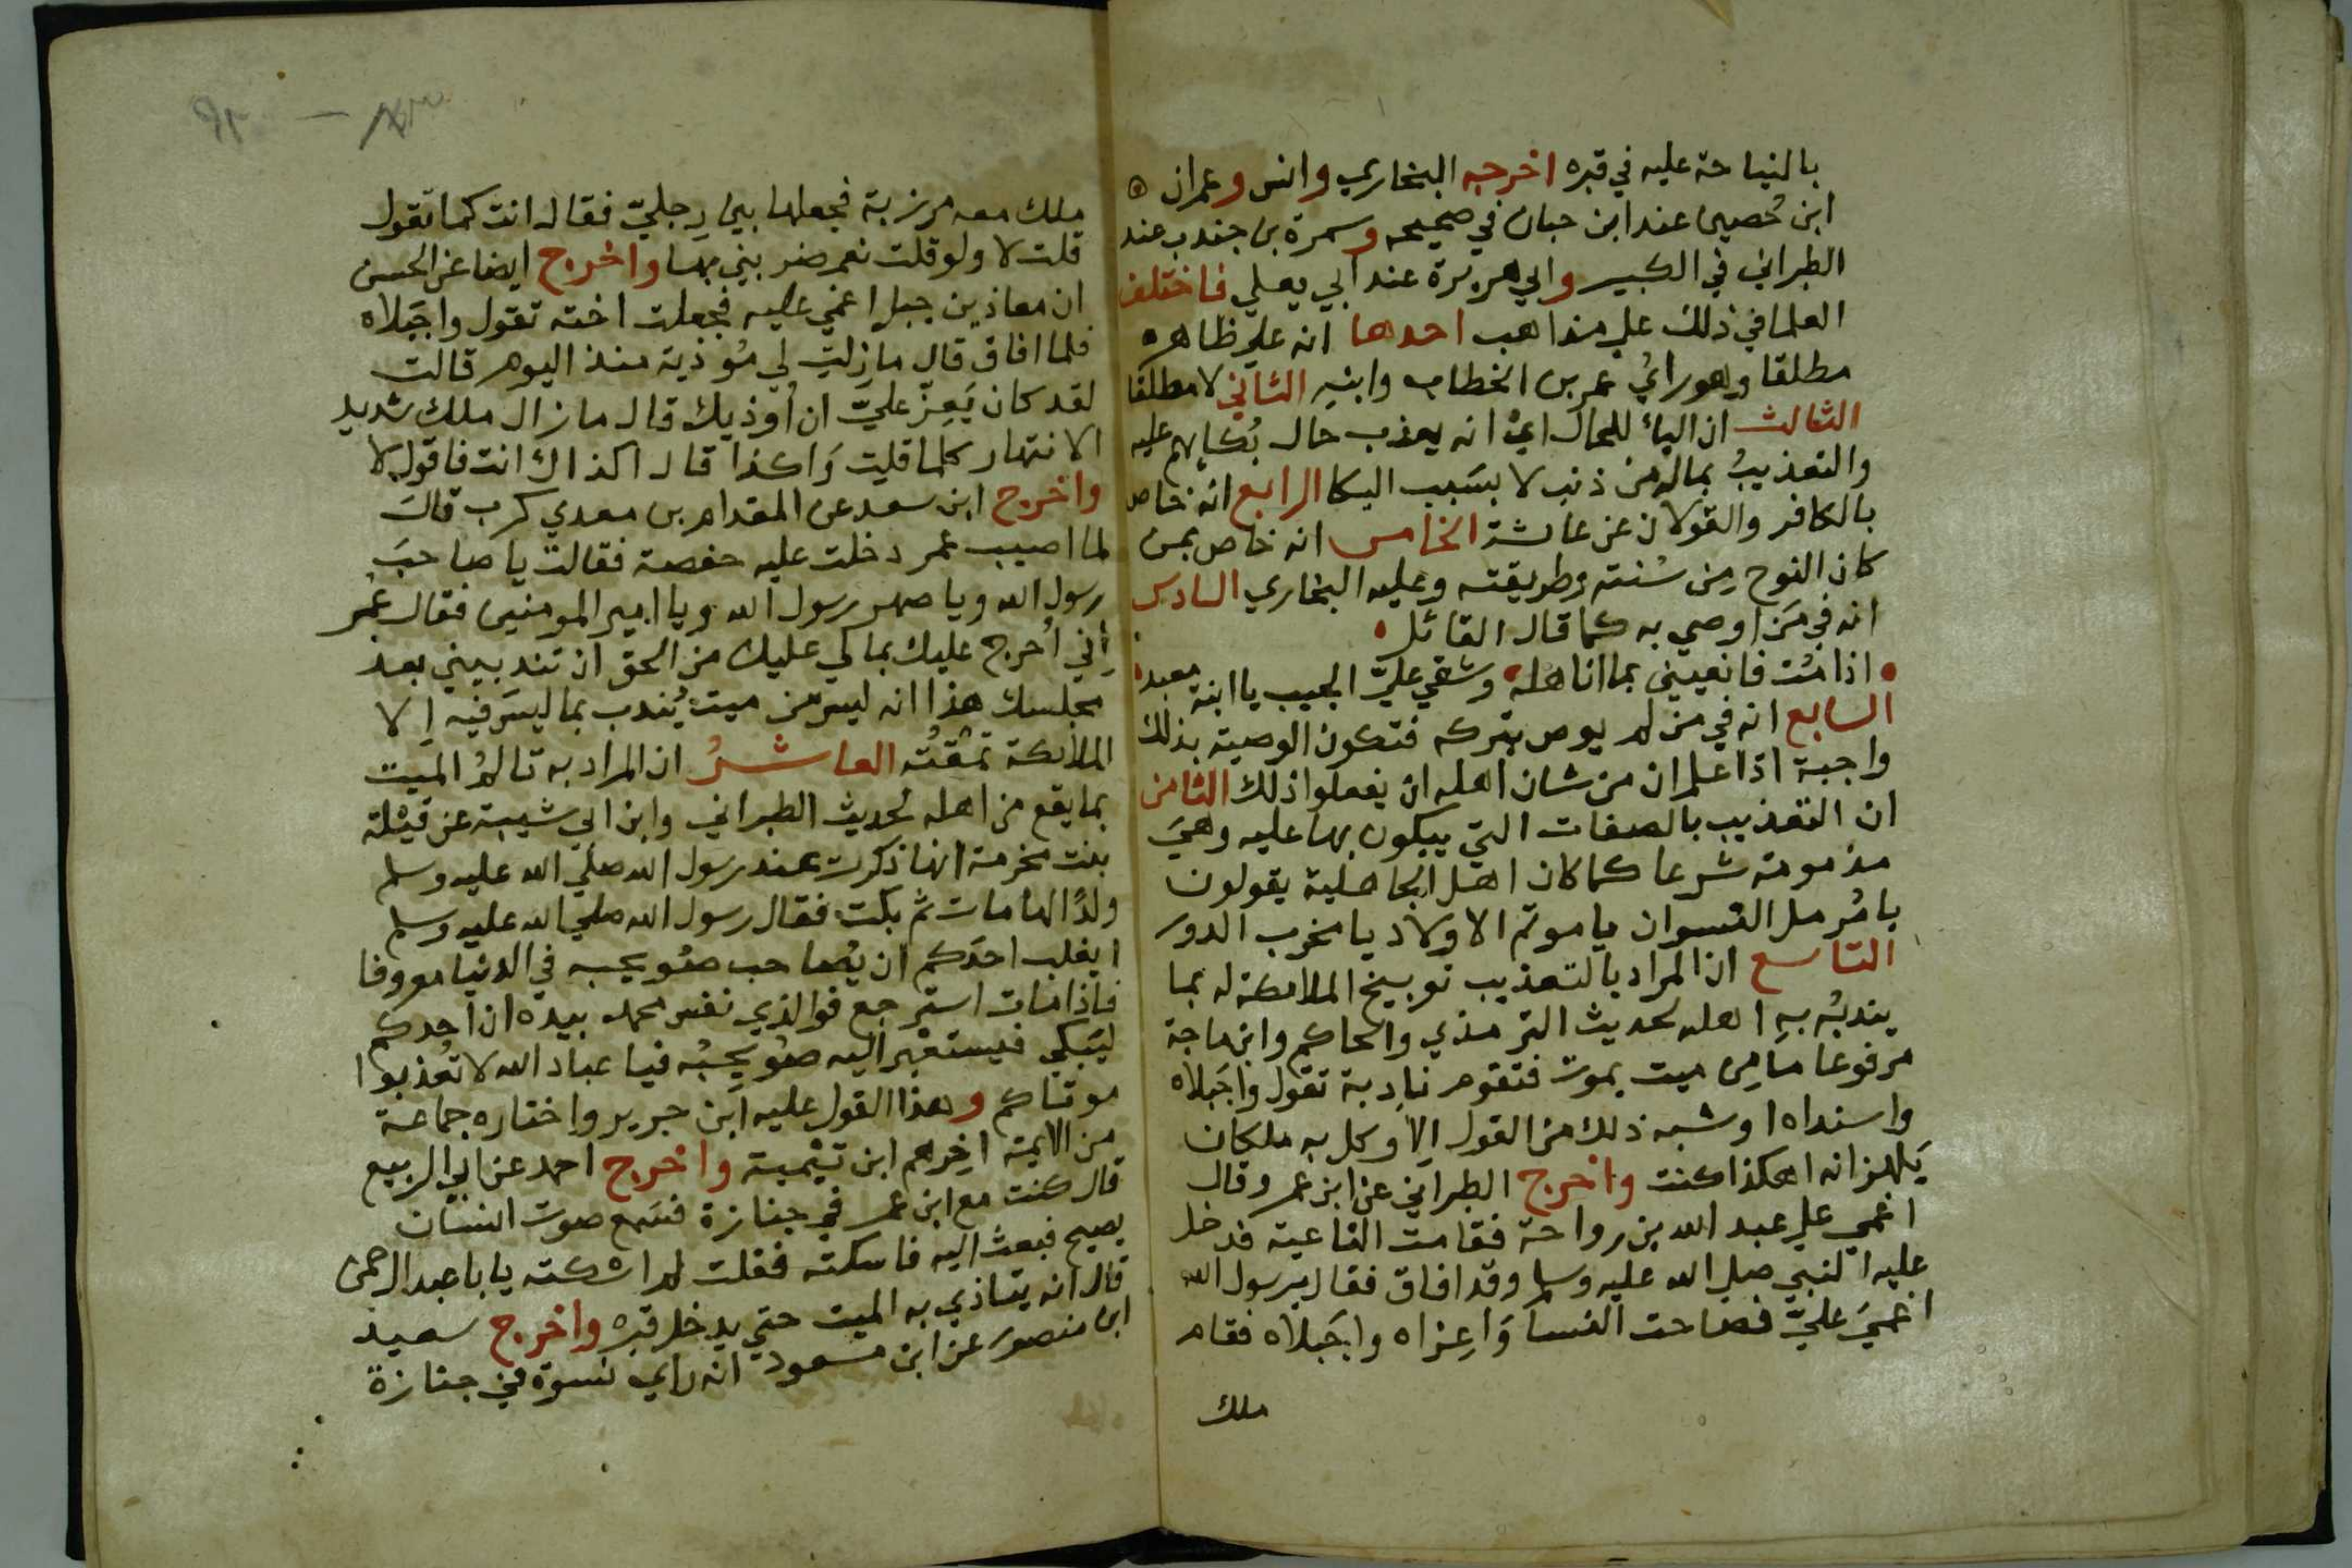 بالنياحة عليه في قبره اخرجه البخاري وانس وعمران
ابن حُصين عند ابن حبان في صحيحه وسمرة بن جندب عند
الطبراني في الكبير وابي هريرة عند ابي يعلي فاختلف
العلما في ذلك علي مذاهب احدها انه علي ظاهره
مطلقا وهو رايُ عمر بن الخطاب وابنهِ الثاني لا مطلقا
الثالث ان الباء للحال اي انه يعذب حال بُكايهم عليه
والتعذيبُ بماله من ذنب لا بسَبب البكا الرابع انه خاص
بالكافر والقولان عن عائشة الخامس انه خاص بمن
كان النوح مِن سُنته وطريقته وعليه البخاري السادس
انه في مَن اوصي به كما قال القائل
اذا مُت فانعيني بما انا اهله وشقي عليّ الجيب يا ابنة معبد
السابع انه في من لم يوص بتركه فتكون الوصية بذلك
واجبة اذا علم ان من شان اهله ان يفعلوا ذلك الثامن
ان التعذيب بالصفات التي يبكون بها عليه وهيَ
مذمومة شرعا كما كان اهل الجاهلية يقولون
يا مُرمل النسوان يا موتم الاولاد يا مخرب الدور
التاسع ان المراد بالتعذيب توبيخ الملائكة له بما
يندبُه بهِ اهله لحديث الترمذي والحاكم وابن ماجة
مرفوعا ما مِن ميت يموت فتقوم نادِبة تقول واجَبلاه
واسنداه او شبه ذلك من القول اِلا وكل به ملكان
يَلهزانه اهكذا كنت واخرج الطبراني عن ابن عمر وقال
اغمي علي عبد الله بن رواحة فقامت الناعية فدخل
عليه النبي صلي الله عليه وسلم وقد افاق فقال يرسول الله
اغميَ عليّ فصاحت النسا وَاعِزاه واجَبلاه فقام
ملك
ملك معه مرزبة فجعلها بين رِجليّ فقال انت كما تقول
قلت لا ولو قلت نعم ضربني بها واخرج ايضا عن الحسن
ان معاذ بن جبل اغمي عليه فجعلت اخته تقول واجَبلاه
فلما افاق قال ما زلتِ لي مُوذية منذ اليوم قالت
لقد كان يَعِزّ عليّ ان اُوذيك قال ما زال ملك شديد
الانتهار كلما قلتِ وَاكذا قال اكذاك انت فاقول لا
واخرج ابن سعد عن المقدام بن معدي كرب قالَ
لما اصيب عمر دخلت عليه حفصة فقالت يا صاحبَ
رسول الله ويا صهر رسول الله ويا امير المومنين فقال عُمر
اِني اُحرج عليك بما لي عليك من الحق ان تندبيني بعد
مجلسك هذا انه ليس من ميت يُندب بما ليسَ فيه اِلا
الملائكة تمقُته العاشرُ ان المراد به تالمُ الميت
بما يقع من اهله لحديث الطبراني وابن ابي شيبة عن قَيْلة
بنت مخرمة انها ذكرت عند رسول الله صلي الله عليه وسلم
ولدًا لها مات ثم بكت فقال رسول الله صلي الله عليه وسلم
ايغلب احدَكم ان يُصاحب صُويحبه في الدنيا معروفا
فاذا مات استرجع فوالذي نفس محمد بيده ان احدكم
ليَبكي فيستعْبر اليه صُويحِبُه فيا عباد الله لا تُعذبوا
موتاكم وهذا القول عليه ابن جرير واختاره جماعة
من الايمة اخِرهم ابن تيْمية واخرج احمد عن ابي الربيع
قال كنت مع ابن عمر في جنازة فسَمع صوت انسان
يصيح فبعث اليه فاسكته فقلت لم اسكته يا با عبد الرحمن
قال انه يتاذي به الميت حتي يدخل قبره واخرج سعيد
ابن منصور عن ابن مسعود انه راي نسوة في جنازة